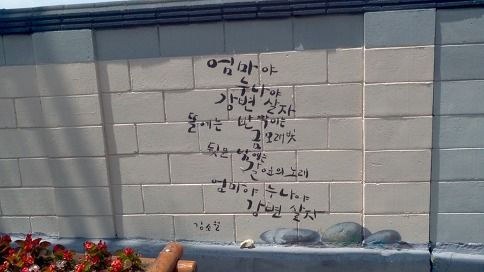 엄마야
누나야
강변 살자
뜰에는 반짝이는
금모래빛
뒷문 밖에는
갈잎의 노래
엄마야 누나야
강변 살자
김소월